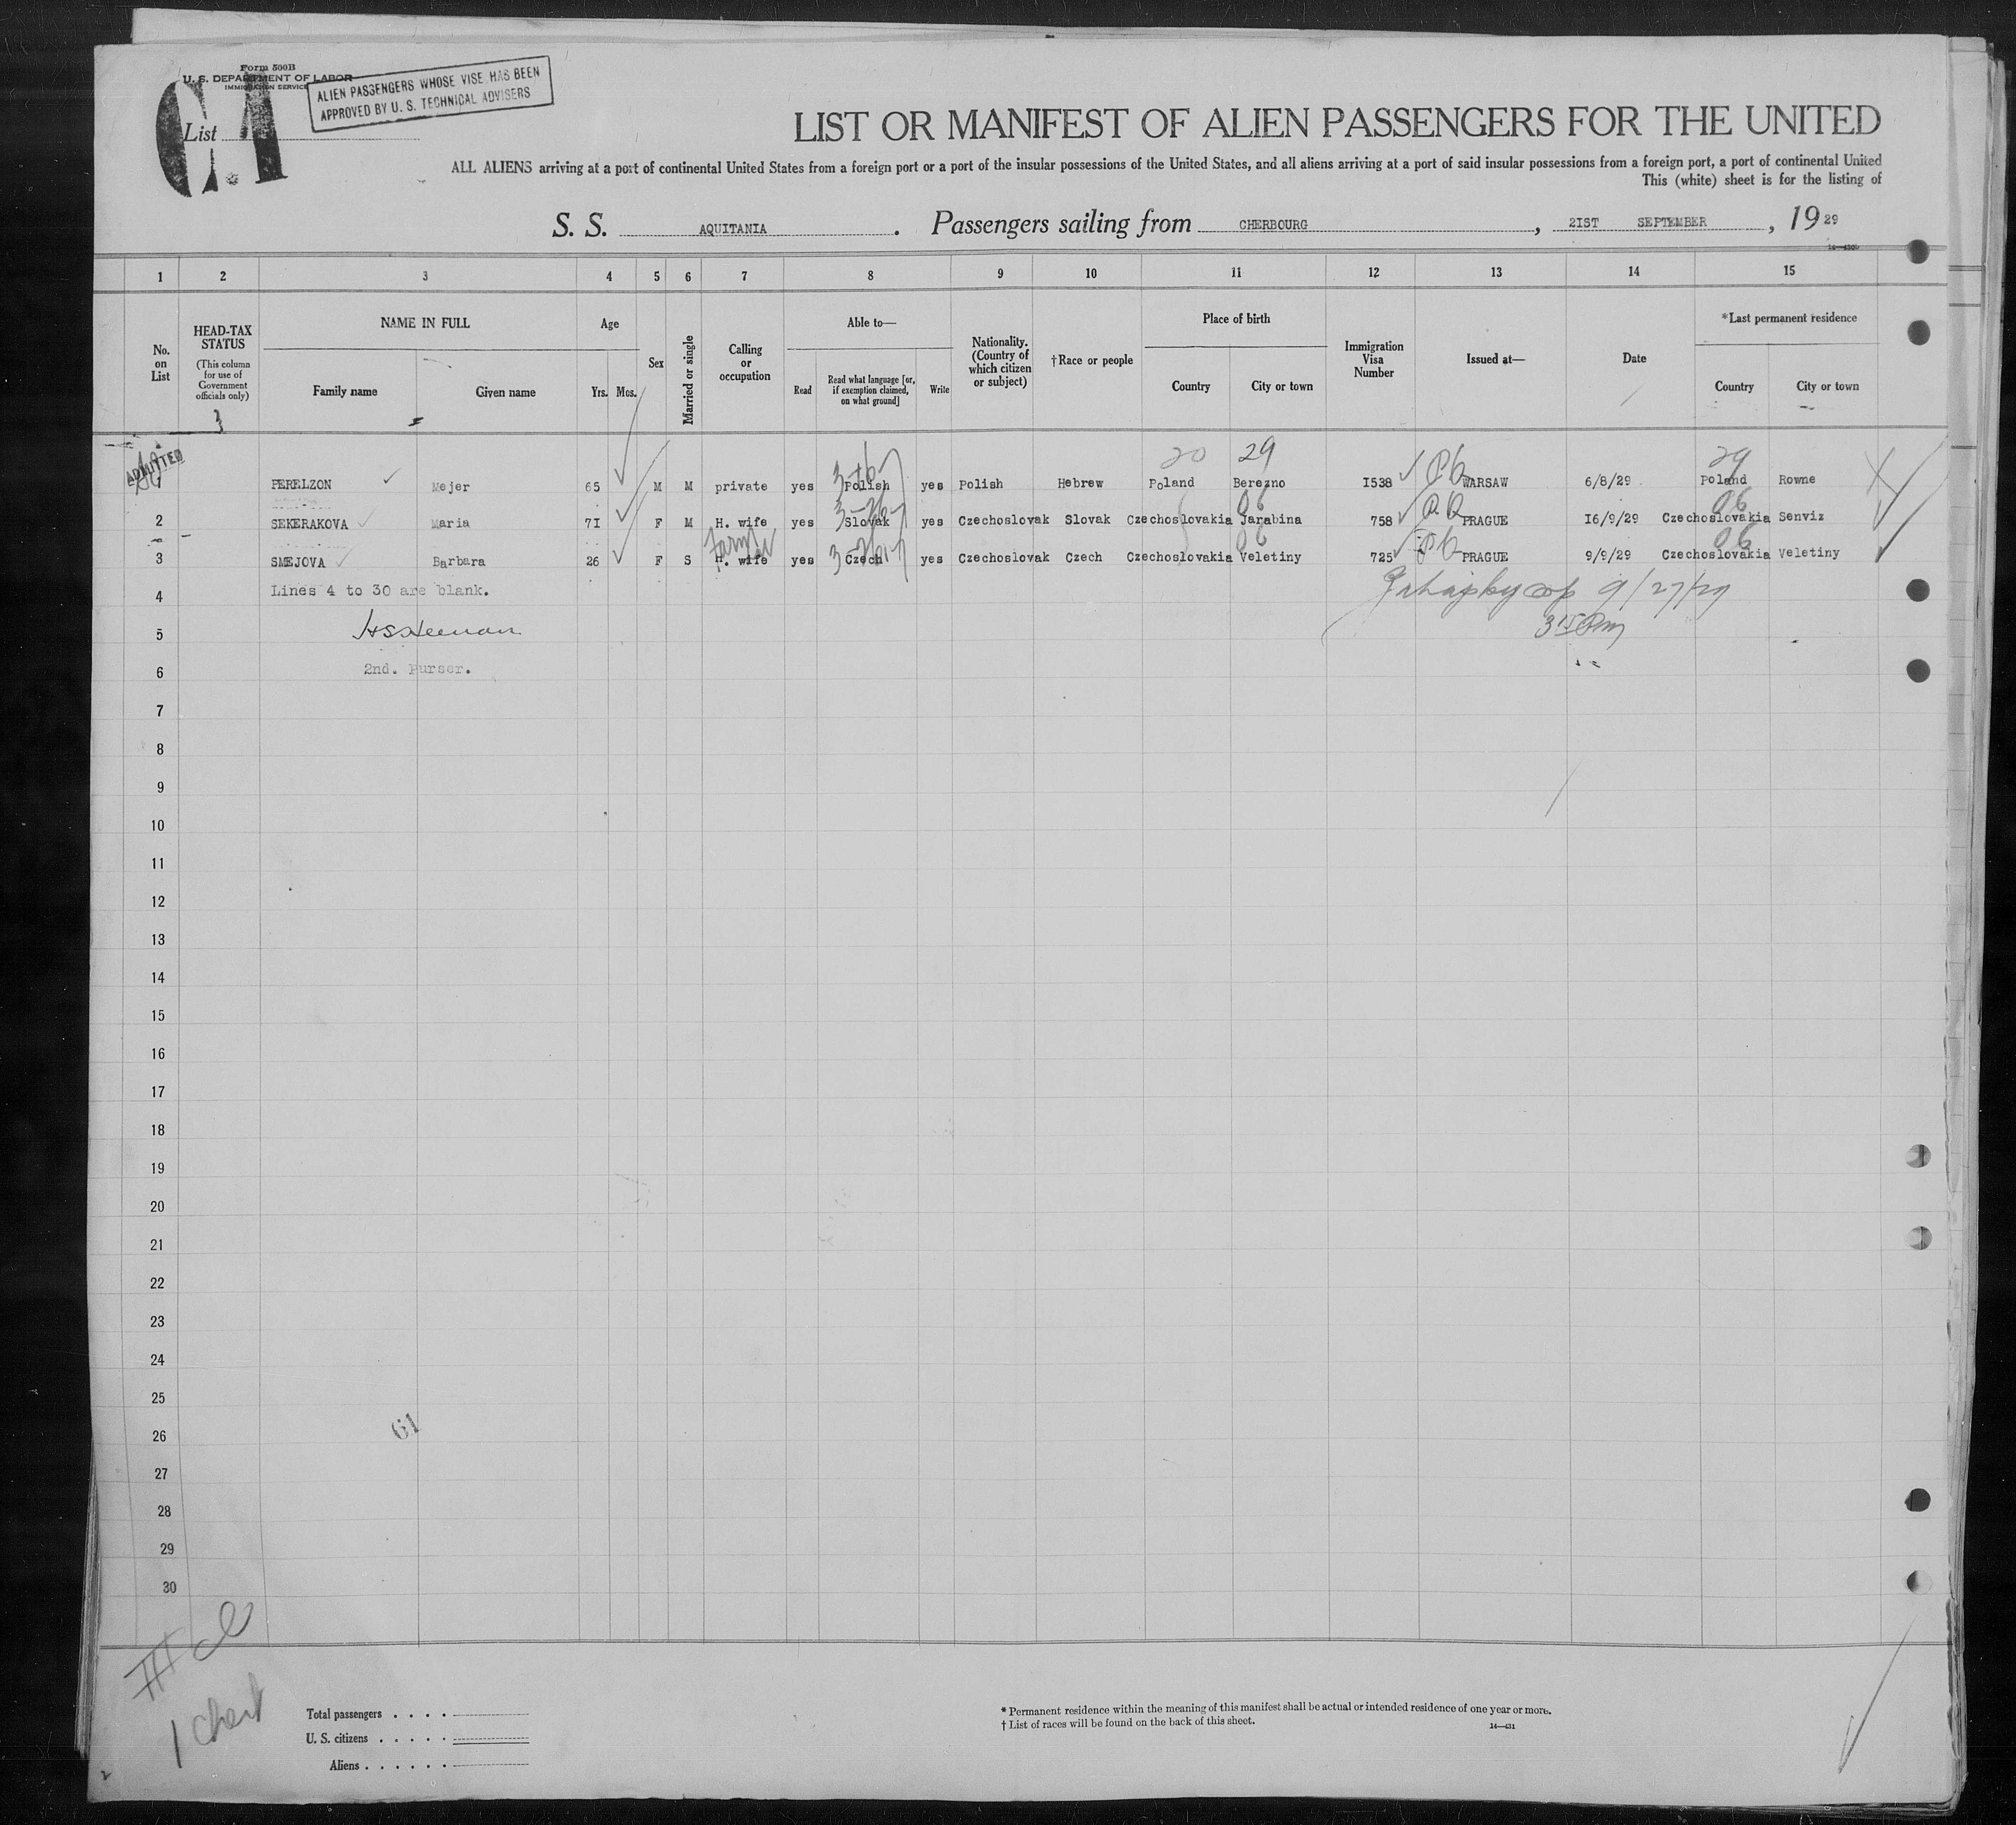 Form 500B
U. S. DEPARTMENT OF LABOR
IMMIGRATION SERVICE
ALIEN PASSENGERS WHOSE VISE HAS BEEN
APPROVED BY U. S. TECHNICAL ADVISERS
List
LIST OR MANIFEST OF ALIEN PASSENGERS FOR THE UNITED
ALL ALIENS arriving at a port of continental United States from a foreign port or a port of the insular possessions of the United States, and all aliens arriving at a port of said insular possessions from a foreign port, a port of continental United
This (white) sheet is for the listing of
S. S. AQUITANIA. Passengers sailing from CHERBOURG, 2IST SEPTEMBER, 19 29
1 2 3 4 5 6 7 8 9 10 11 12 13 14 15
No. on List
HEAD-TAX STATUS (This column for use of Government officials only)
NAME IN FULL Family name Given name
Age Yrs. Mos.
Sex
Married or single
Calling or occupation
Able to— Read Read what language [or, if exemption claimed, on what ground] Write
Nationality. (Country of which citizen or subject)
†Race or people
Place of birth Country City or town
Immigration Visa Number
Issued at—
Date
*Last permanent residence Country City or town
20 29 29
ADMITTED
1 PERELZON Mejer 65 M M private yes Polish yes Polish Hebrew Poland Berezno I538 WARSAW 6/8/29 Poland Rowne
06 06
2 SEKERAKOVA Maria 7I F M H. wife yes Slovak yes Czechoslovak Slovak Czechoslovakia Jarabina 758 PRAGUE I6/9/29 Czechoslovakia Senviz
06 06
3 SMEJOVA Barbara 26 F S H. wife yes Czech yes Czechoslovak Czech Czechoslovakia Veletiny 725 PRAGUE 9/9/29 Czechoslovakia Veletiny
4 Lines 4 to 30 are blank.
9/27/29
5
6 2nd. Purser.
7
8
9
10
11
12
13
14
15
16
17
18
19
20
21
22
23
24
25
26
61
27
28
29
30
Total passengers
U. S. citizens
Aliens
* Permanent residence within the meaning of this manifest shall be actual or intended residence of one year or more.
† List of races will be found on the back of this sheet.
14—431